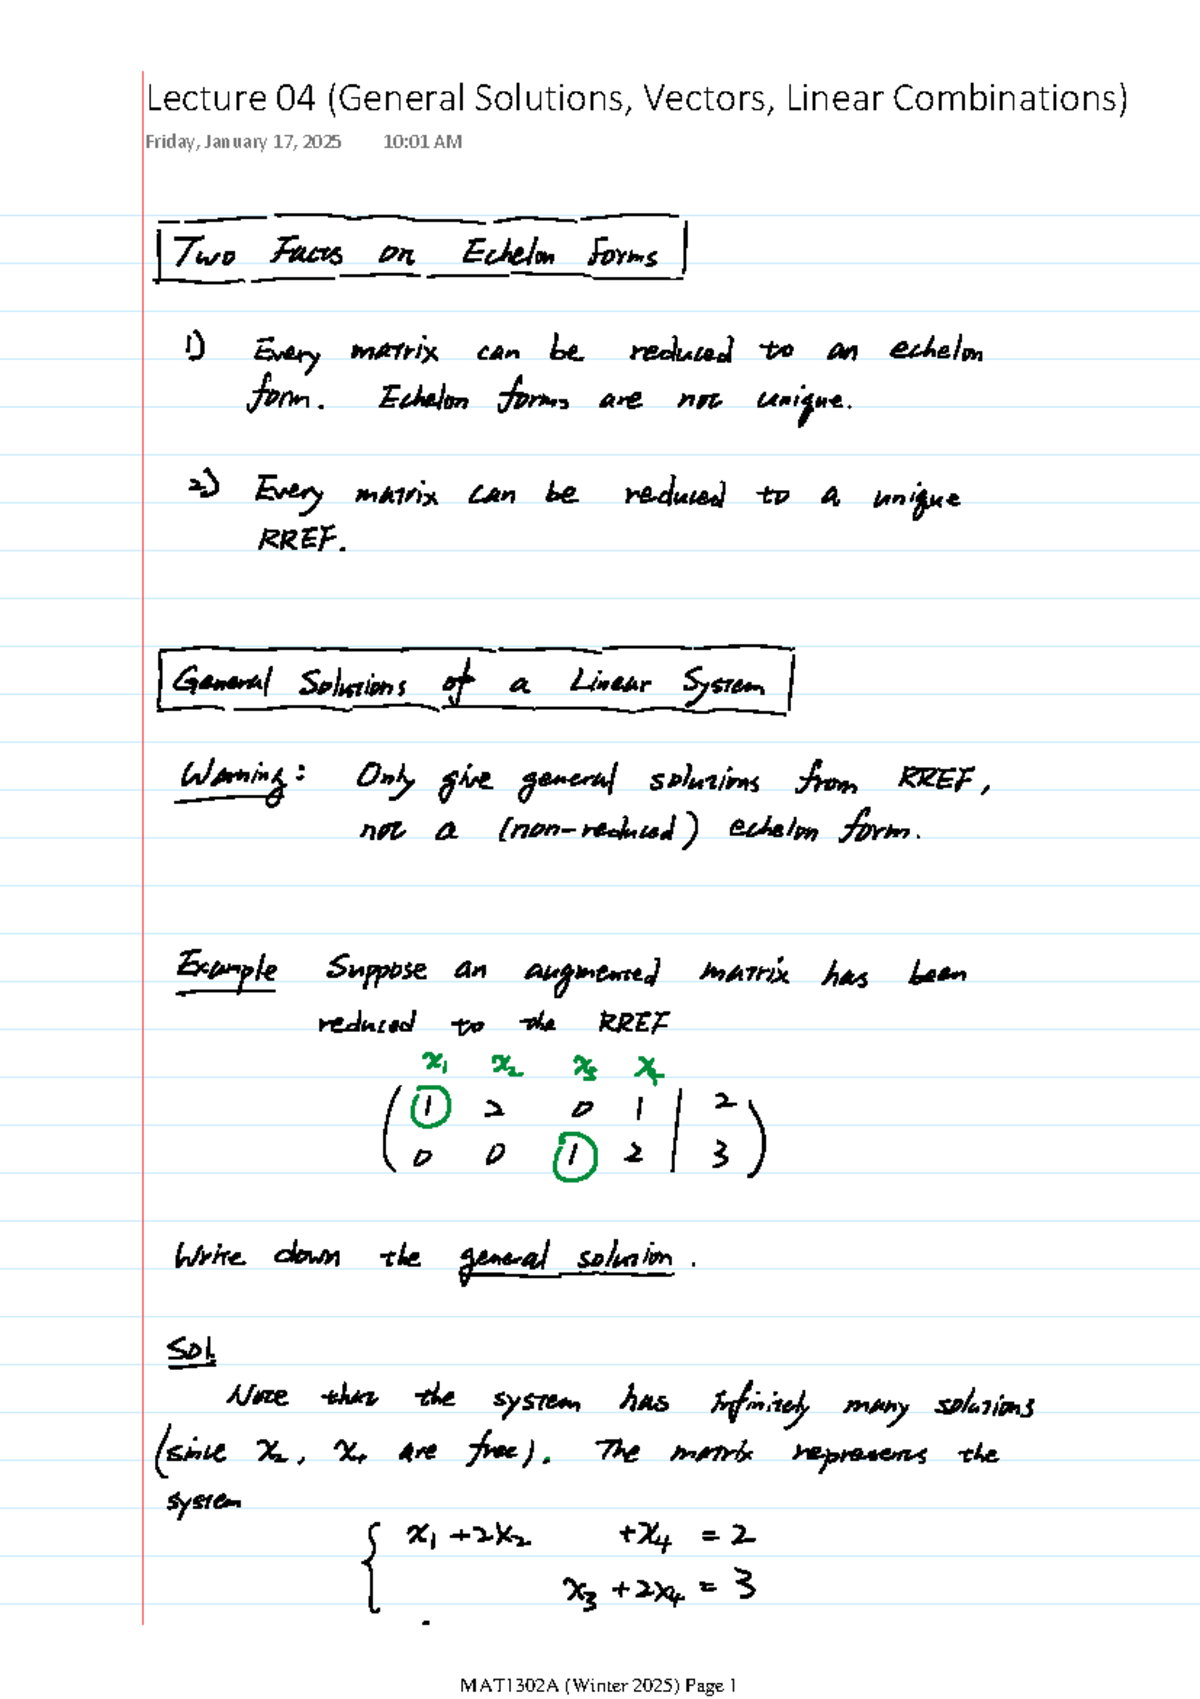 Lecture 04 (General Solutions, Vectors, Linear Combinations)
Friday, January 17, 2025 10:01 AM
Two Facts on Echelon Forms
1) Every matrix can be reduced to an echelon
form. Echelon forms are not unique.
2) Every matrix can be reduced to a unique
RREF.
General Solutions of a Linear System
Warning: Only give general solutions from RREF,
not a (non-reduced) echelon form.
Example Suppose an augmented matrix has been
reduced to the RREF
x₁ x₂ x₃ x₄
( 1 2 0 1 | 2 )
( 0 0 1 2 | 3 )
Write down the general solution.
Sol.
Note that the system has infinitely many solutions
(since x₂, x₄ are free). The matrix represents the
system
{ x₁ +2x₂ +x₄ = 2
x₃ +2x₄ = 3
MAT1302A (Winter 2025) Page 1